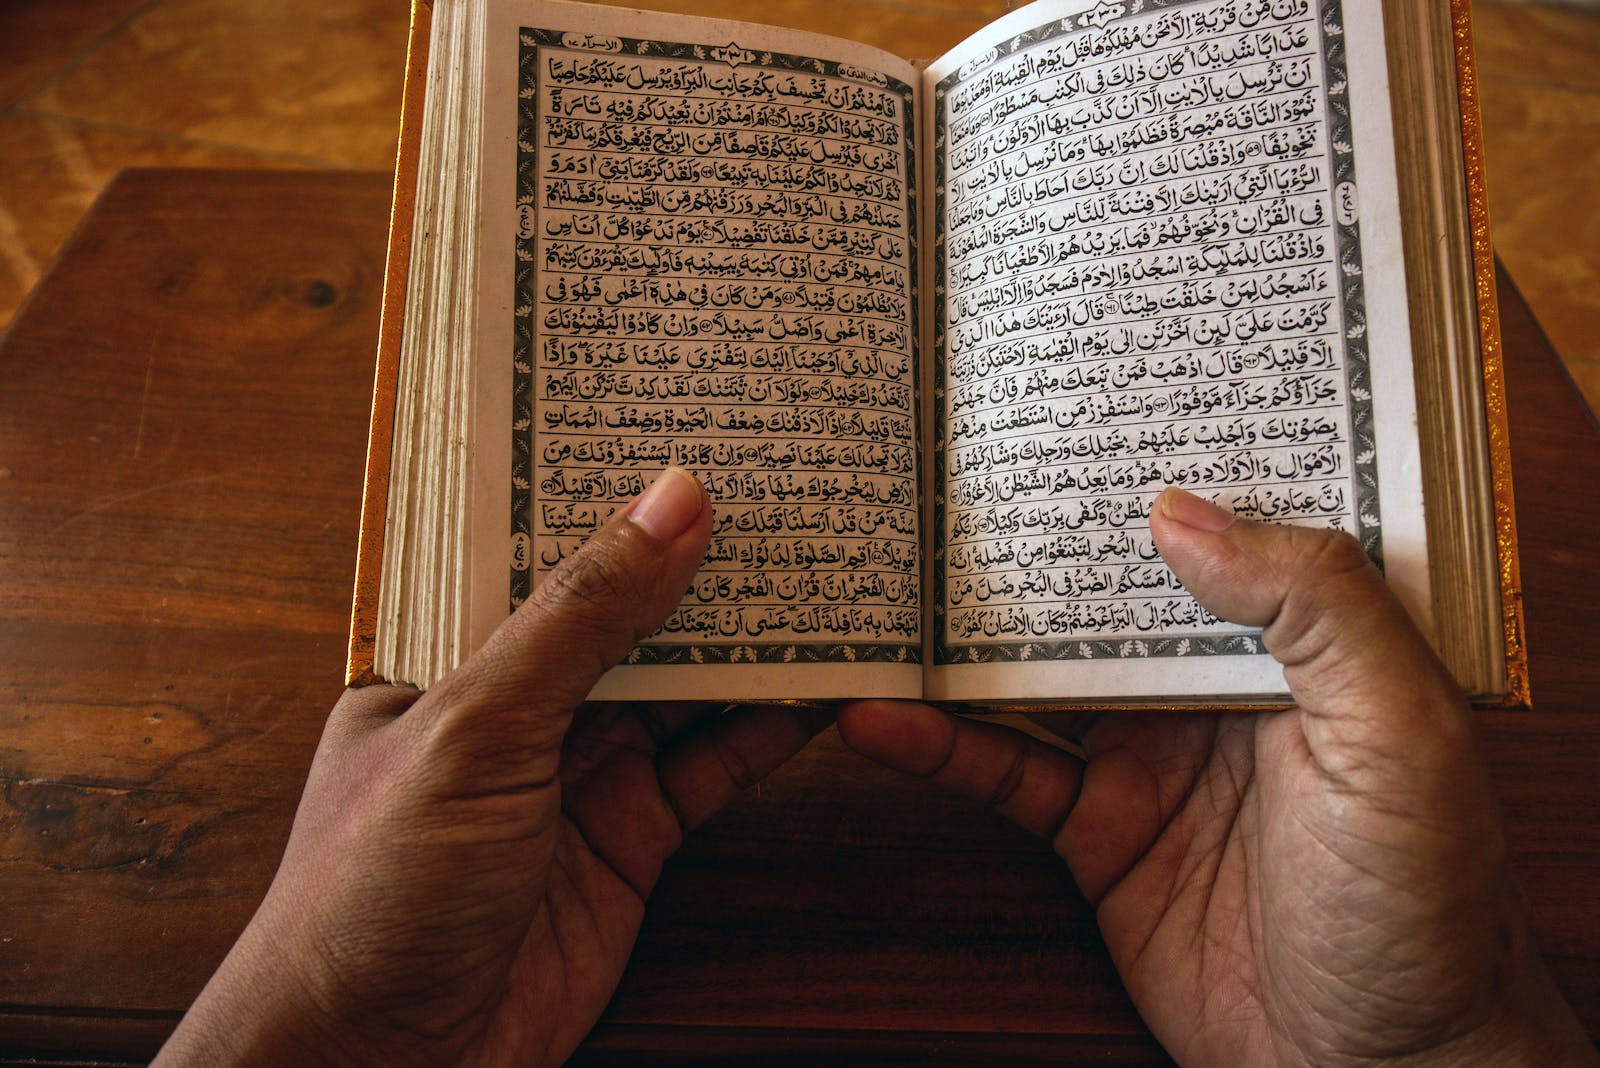 ٢٣٠
الاسرآء ١٧
وَاِنْ مِّنْ قَرْيَةٍ اِلَّا نَحْنُ مُهْلِكُوْهَا قَبْلَ يَوْمِ الْقِيٰمَةِ اَوْ مُعَذِّبُوْهَا
عَذَابًا شَدِيْدًا ۗ كَانَ ذٰلِكَ فِى الْكِتٰبِ مَسْطُوْرًا ٥٨ وَمَا مَنَعَنَآ
اَنْ نُّرْسِلَ بِالْاٰيٰتِ اِلَّآ اَنْ كَذَّبَ بِهَا الْاَوَّلُوْنَ ۗ وَاٰتَيْنَا
ثَمُوْدَ النَّاقَةَ مُبْصِرَةً فَظَلَمُوْا بِهَا ۗ وَمَا نُرْسِلُ بِالْاٰيٰتِ اِلَّا
تَخْوِيْفًا ٥٩ وَاِذْ قُلْنَا لَكَ اِنَّ رَبَّكَ اَحَاطَ بِالنَّاسِ ۗ وَمَا جَعَلْنَا
الرُّءْيَا الَّتِيْٓ اَرَيْنٰكَ اِلَّا فِتْنَةً لِّلنَّاسِ وَالشَّجَرَةَ الْمَلْعُوْنَةَ
فِى الْقُرْاٰنِ ۗ وَنُخَوِّفُهُمْ ۙ فَمَا يَزِيْدُهُمْ اِلَّا طُغْيَانًا كَبِيْرًا ٦٠
وَاِذْ قُلْنَا لِلْمَلٰٓئِكَةِ اسْجُدُوْا لِاٰدَمَ فَسَجَدُوْٓا اِلَّآ اِبْلِيْسَ ۗ قَالَ
ءَاَسْجُدُ لِمَنْ خَلَقْتَ طِيْنًا ٦١ قَالَ اَرَءَيْتَكَ هٰذَا الَّذِيْ
كَرَّمْتَ عَلَيَّ لَىِٕنْ اَخَّرْتَنِ اِلٰى يَوْمِ الْقِيٰمَةِ لَاَحْتَنِكَنَّ ذُرِّيَّتَهٗٓ
اِلَّا قَلِيْلًا ٦٢ قَالَ اذْهَبْ فَمَنْ تَبِعَكَ مِنْهُمْ فَاِنَّ جَهَنَّمَ
جَزَآؤُكُمْ جَزَآءً مَّوْفُوْرًا ٦٣ وَاسْتَفْزِزْ مَنِ اسْتَطَعْتَ مِنْهُمْ
بِصَوْتِكَ وَاَجْلِبْ عَلَيْهِمْ بِخَيْلِكَ وَرَجِلِكَ وَشَارِكْهُمْ فِى
الْاَمْوَالِ وَالْاَوْلَادِ وَعِدْهُمْ ۗ وَمَا يَعِدُهُمُ الشَّيْطٰنُ اِلَّا غُرُوْرًا ٦٤
اِنَّ عِبَادِيْ لَيْسَ سُلْطٰنٌ ۗ وَكَفٰى بِرَبِّكَ وَكِيْلًا ٦٥ رَبُّكُمُ
فِى الْبَحْرِ لِتَبْتَغُوْا مِنْ فَضْلِهٖ ۗ اِنَّهٗ
مَسَّكُمُ الضُّرُّ فِى الْبَحْرِ ضَلَّ مَنْ
نَجّٰىكُمْ اِلَى الْبَرِّ اَعْرَضْتُمْ ۗ وَكَانَ الْاِنْسَانُ كَفُوْرًا ٦٧
سبحن الذى ١٥
٢٣١
الاسرآء ١٧
اَفَاَمِنْتُمْ اَنْ يَّخْسِفَ بِكُمْ جَانِبَ الْبَرِّ اَوْ يُرْسِلَ عَلَيْكُمْ حَاصِبًا
ثُمَّ لَا تَجِدُوْا لَكُمْ وَكِيْلًا ٦٨ اَمْ اَمِنْتُمْ اَنْ يُّعِيْدَكُمْ فِيْهِ تَارَةً
اُخْرٰى فَيُرْسِلَ عَلَيْكُمْ قَاصِفًا مِّنَ الرِّيْحِ فَيُغْرِقَكُمْ بِمَا كَفَرْتُمْ
ثُمَّ لَا تَجِدُوْا لَكُمْ عَلَيْنَا بِهٖ تَبِيْعًا ٦٩ وَلَقَدْ كَرَّمْنَا بَنِيْٓ اٰدَمَ وَ
حَمَلْنٰهُمْ فِى الْبَرِّ وَالْبَحْرِ وَرَزَقْنٰهُمْ مِّنَ الطَّيِّبٰتِ وَفَضَّلْنٰهُمْ
عَلٰى كَثِيْرٍ مِّمَّنْ خَلَقْنَا تَفْضِيْلًا ٧٠ يَوْمَ نَدْعُوْا كُلَّ اُنَاسٍ
بِاِمَامِهِمْ ۚ فَمَنْ اُوْتِيَ كِتٰبَهٗ بِيَمِيْنِهٖ فَاُولٰٓئِكَ يَقْرَءُوْنَ كِتٰبَهُمْ
وَلَا يُظْلَمُوْنَ فَتِيْلًا ٧١ وَمَنْ كَانَ فِيْ هٰذِهٖٓ اَعْمٰى فَهُوَ فِى
الْاٰخِرَةِ اَعْمٰى وَاَضَلُّ سَبِيْلًا ٧٢ وَاِنْ كَادُوْا لَيَفْتِنُوْنَكَ
عَنِ الَّذِيْٓ اَوْحَيْنَآ اِلَيْكَ لِتَفْتَرِيَ عَلَيْنَا غَيْرَهٗ ۖ وَاِذًا
لَّاتَّخَذُوْكَ خَلِيْلًا ٧٣ وَلَوْلَآ اَنْ ثَبَّتْنٰكَ لَقَدْ كِدْتَّ تَرْكَنُ اِلَيْهِمْ
شَيْـًٔا قَلِيْلًا ٧٤ اِذًا لَّاَذَقْنٰكَ ضِعْفَ الْحَيٰوةِ وَضِعْفَ الْمَمَاتِ
ثُمَّ لَا تَجِدُ لَكَ عَلَيْنَا نَصِيْرًا ٧٥ وَاِنْ كَادُوْا لَيَسْتَفِزُّوْنَكَ مِنَ
الْاَرْضِ لِيُخْرِجُوْكَ مِنْهَا وَاِذًا لَّا اِلَّا قَلِيْلًا ٧٦
سُنَّةَ مَنْ قَدْ اَرْسَلْنَا قَبْلَكَ مِنْ لِسُنَّتِنَا
تَحْوِيْلًا ٧٧ اَقِمِ الصَّلٰوةَ لِدُلُوْكِ
وَقُرْاٰنَ الْفَجْرِ ۗ اِنَّ قُرْاٰنَ الْفَجْرِ كَانَ
فَتَهَجَّدْ بِهٖ نَافِلَةً لَّكَ ۖ عَسٰٓى اَنْ يَّبْعَثَكَ